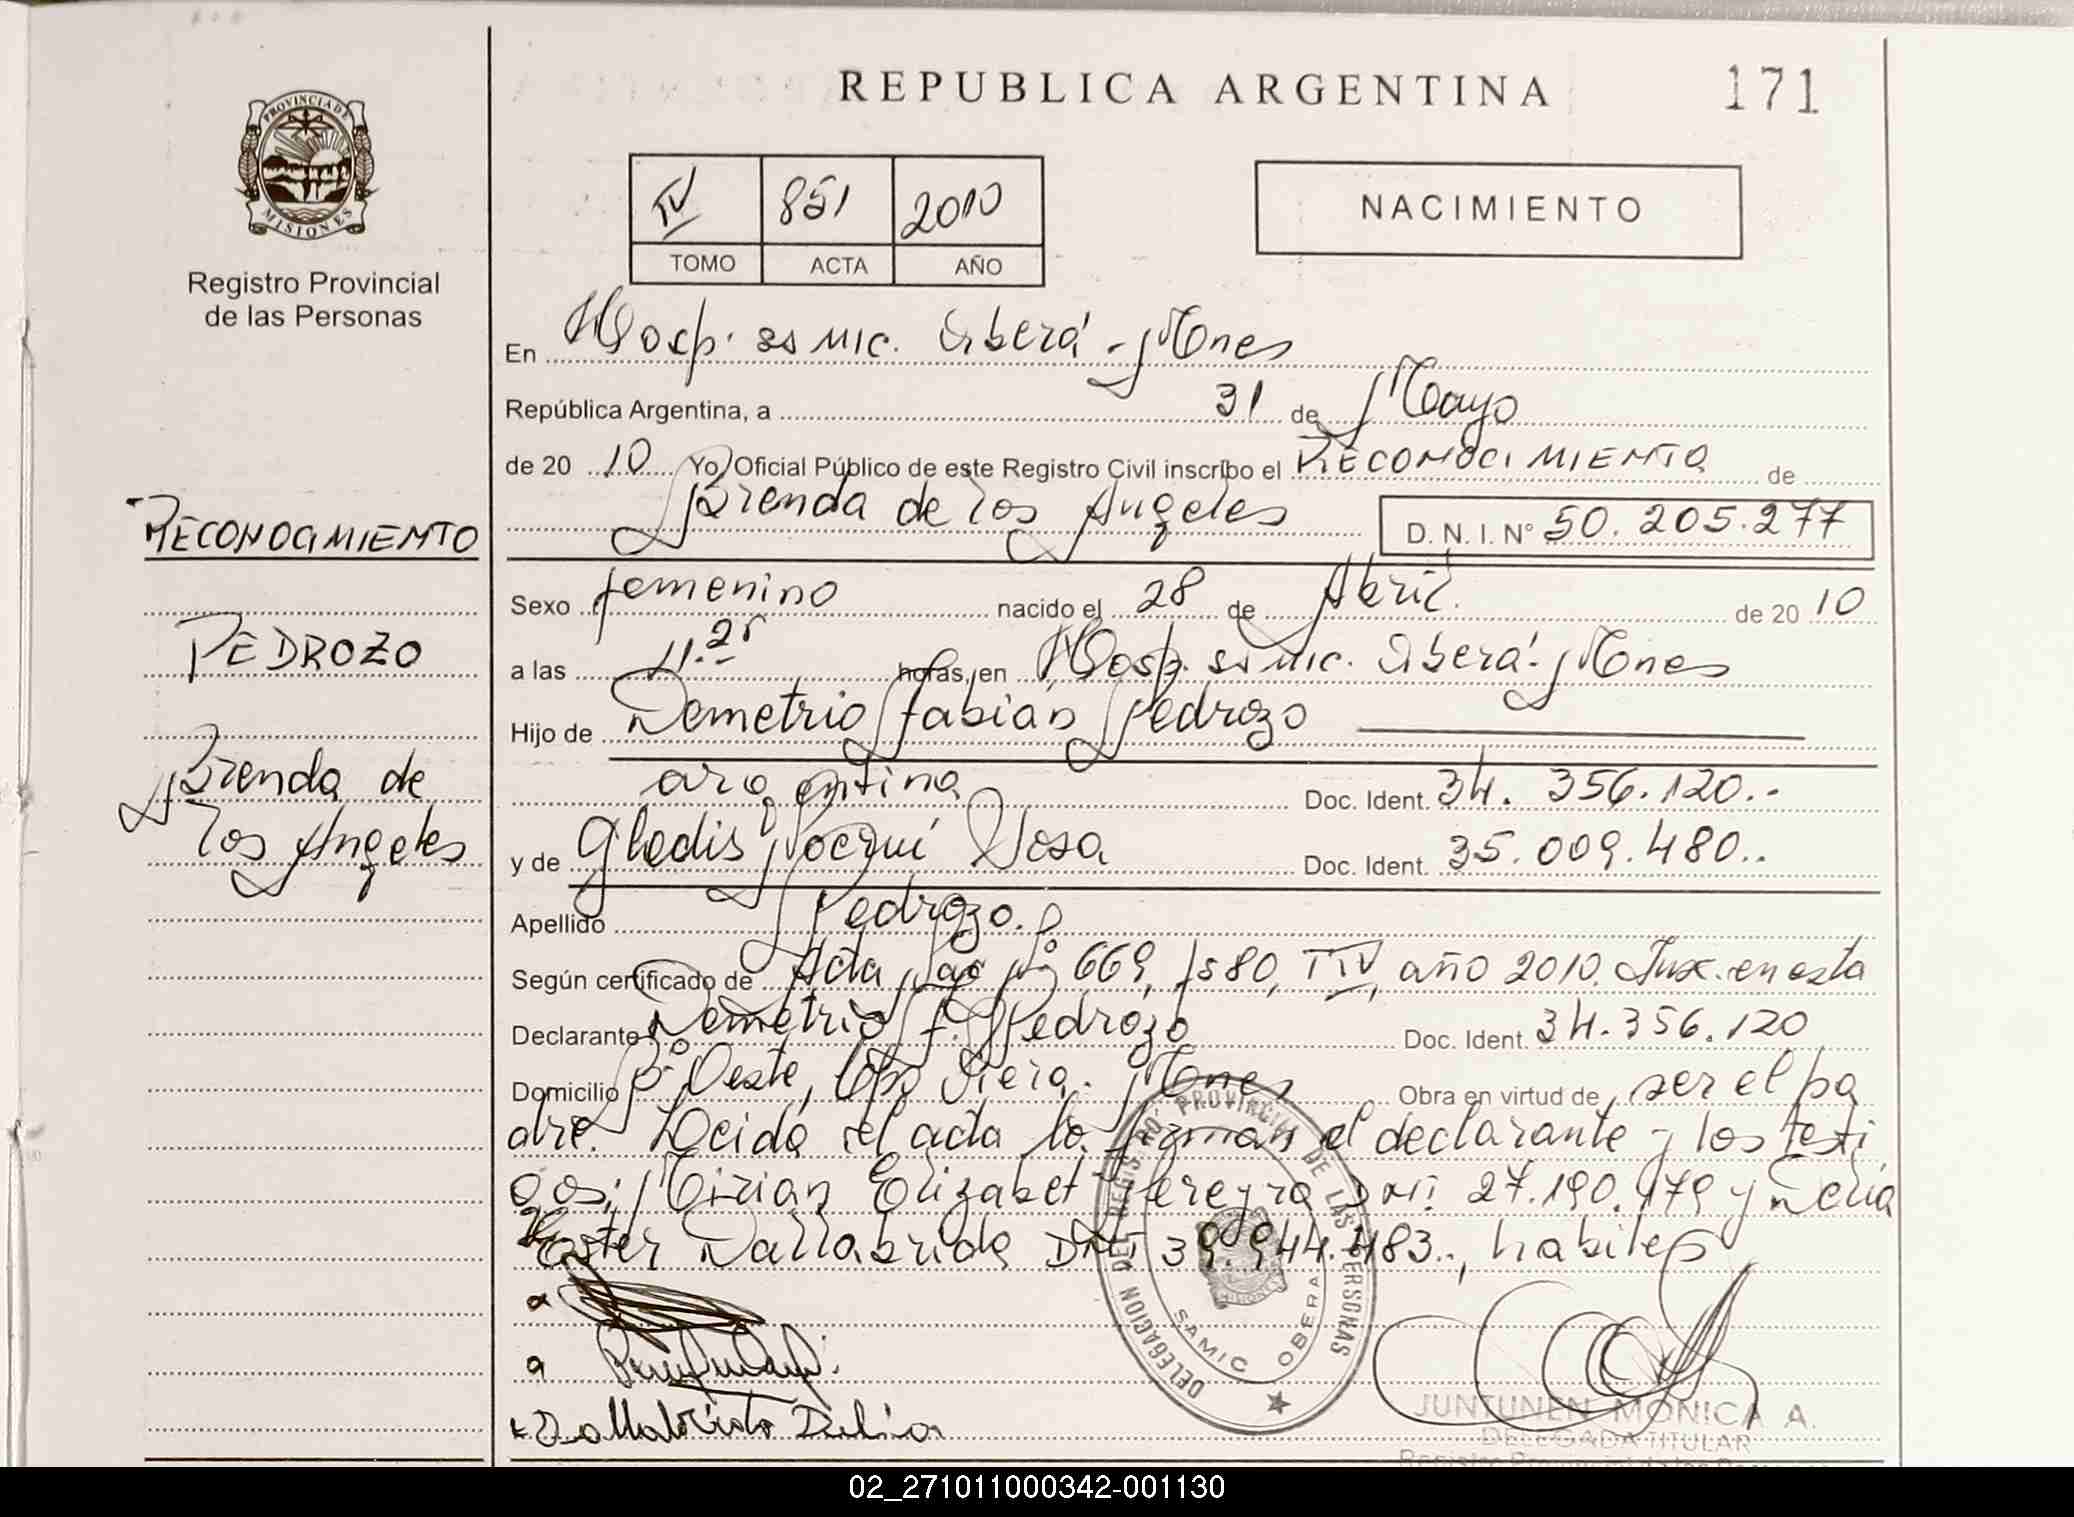 REPUBLICA ARGENTINA
171
PROVINCIA DE
MISIONES
Registro Provincial
de las Personas
IV 851 2010
TOMO ACTA AÑO
NACIMIENTO
En Hosp. samic. Oberá - Mnes
República Argentina, a 31 de Mayo
de 20 10 Yo, Oficial Público de este Registro Civil inscribo el RECONOCIMIENTO de
Brenda de los Angeles D. N. I. Nº 50.205.277
RECONOCIMIENTO
PEDROZO
Brenda de
los Angeles
Sexo femenino nacido el 28 de Abril. de 20 10
a las 11.25 horas, en Hosp. samic. Oberá - Mnes
Hijo de Demetrio Fabián Pedrozo
argentina Doc. Ident. 34.356.120..
y de Gladis Sosa Doc. Ident. 35.009.480..
Apellido Pedrozo.
Según certificado de Acta Nac Nº 669, fs 80, T IV, año 2010. Insc. en esta
Declarante Demetrio F. Pedrozo Doc. Ident. 34.356.120
Domicilio Bº Oeste, Mnes Obra en virtud de ser el pa
dre. Leida el acta la firman el declarante y los testi
gos: Mirian Elizabet Pereyra DNI 27.190.179 y Delia
Ester Dallabrida DNI 39.944.483.., habiles
DELEGACION DEL REGISTRO PROVINCIAL DE LAS PERSONAS
SAMIC OBERA
Dallabrida Delia
JUNTUNEN MONICA A.
DELEGADA TITULAR
02_271011000342-001130